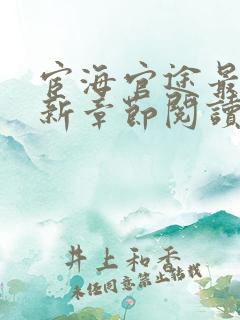 宦海官途最
新章節閱讀
井上和香
未经同意禁止转载